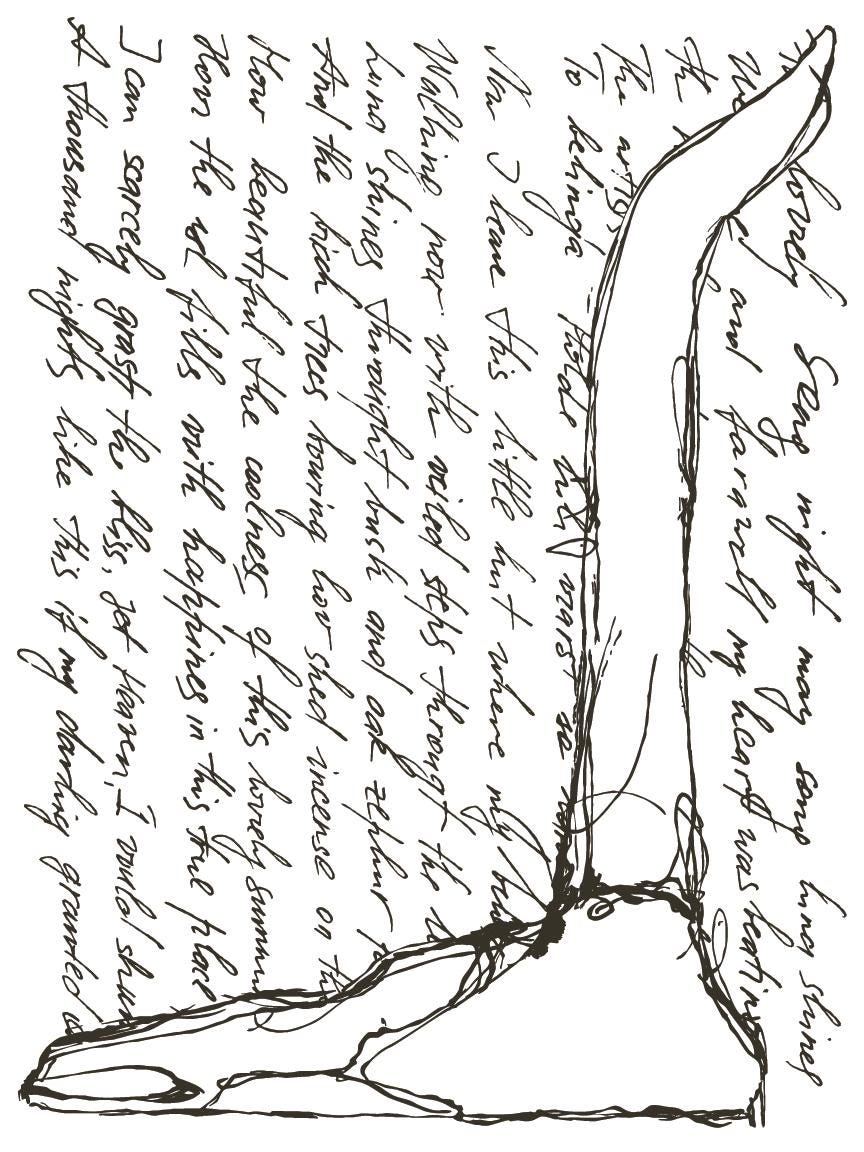 lovely Song night may song luna shines
and farwell my heart was beating
The
The artis
To
Now I leave this little hut where my
Walking now with veiled steps throught the
Luna shines throught bush and oak zephur
And the birch trees bowing low shed incense on th
How beautiful the coolness of this lovely summ
How the sol fills with happines in this true place
I can scarcely grast the bliss, yet Heaven, I would shun
A thousand nights like this if my darling granted